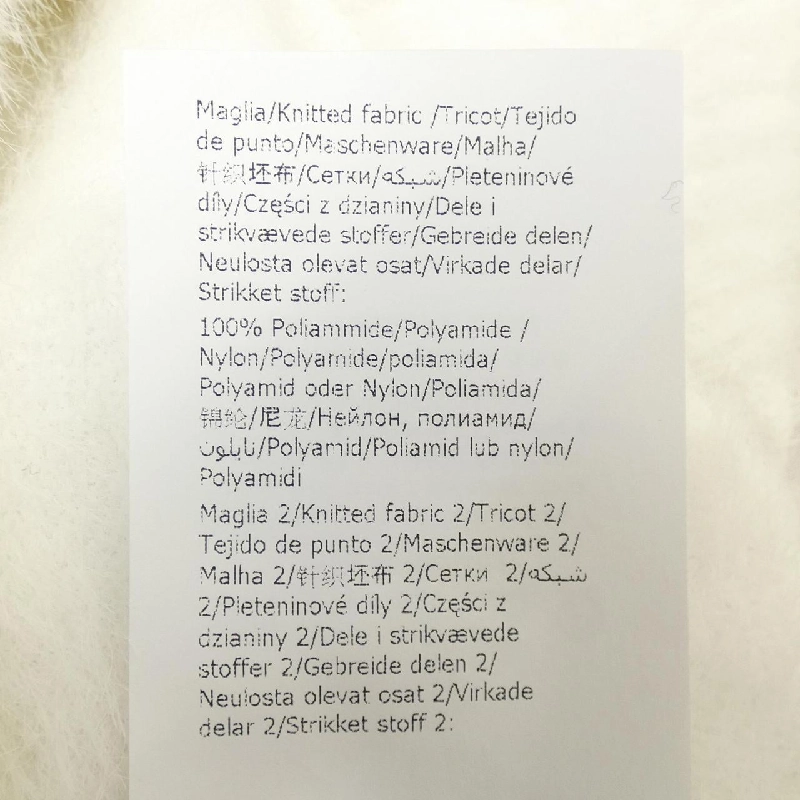 Maglia/Knitted fabric /Tricot/Tejido
de punto/Maschenware/Malha/
针织坯布/Сетки/شبكه/Pleteninové
díly/Części z dzianiny/Dele i
strikvævede stoffer/Gebreide delen/
Neulosta olevat osat/Virkade delar/
Strikket stoff:
100% Poliammide/Polyamide /
Nylon/Polyamide/poliamida/
Polyamid oder Nylon/Poliamida/
锦纶/尼龙/Нейлон, полиамид/
نايلون/Polyamid/Poliamid lub nylon/
Polyamidi
Maglia 2/Knitted fabric 2/Tricot 2/
Tejido de punto 2/Maschenware 2/
Malha 2/针织坯布 2/Сетки 2/شبكه
2/Pleteninové díly 2/Części z
dzianiny 2/Dele i strikvævede
stoffer 2/Gebreide delen 2/
Neulosta olevat osat 2/Virkade
delar 2/Strikket stoff 2: